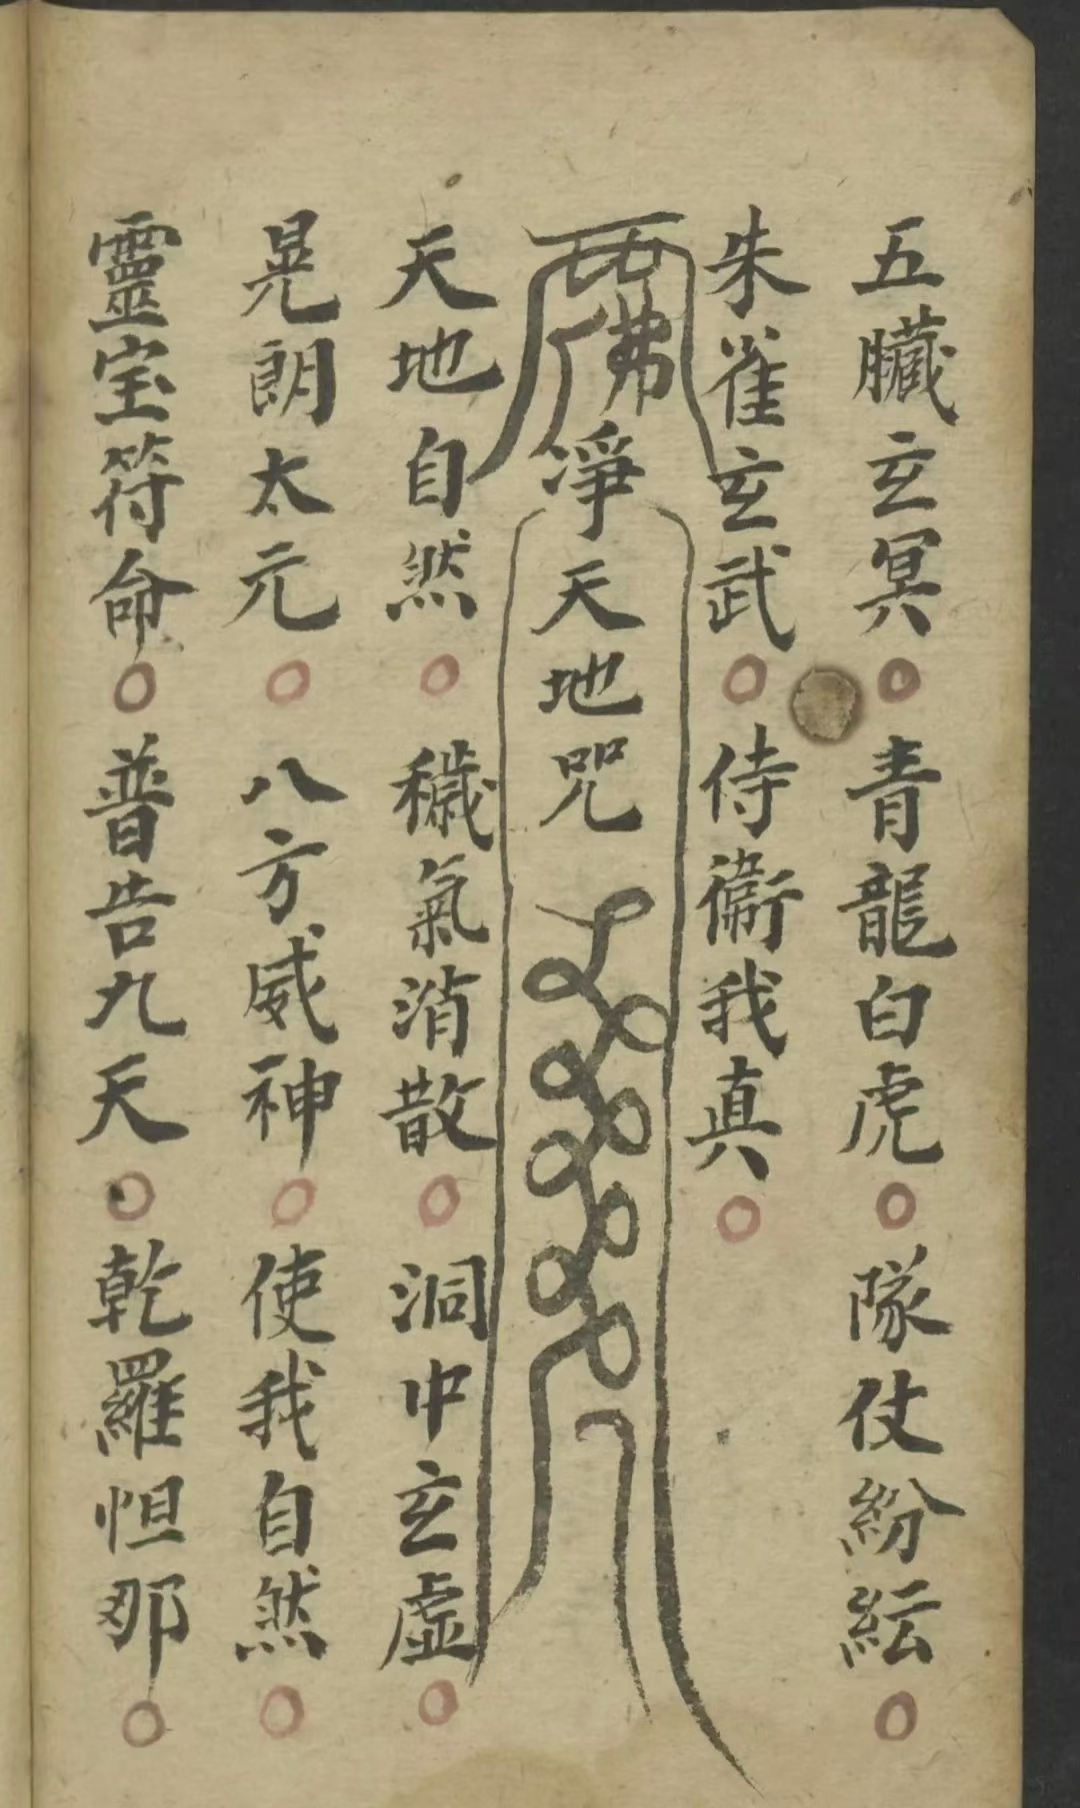 五臟玄冥○青龍白虎○隊仗紛紜○
朱雀玄武○侍衛我真○
佛淨天地咒
天地自然○穢氣消散○洞中玄虛○
晃朗太元○八方威神○使我自然○
靈宝符命○普告九天○乾羅怛那○